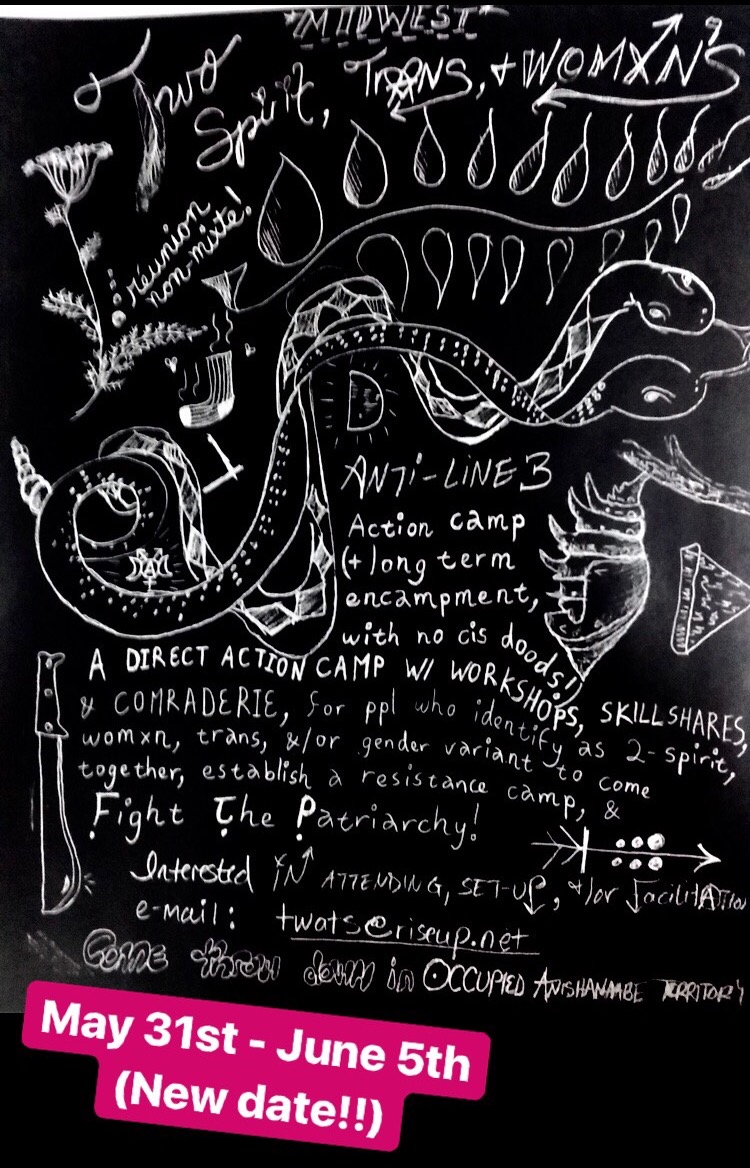 *MIDWEST*
Two Spirit, TRANS, + WOMXN'S
réunion
non-mixte!
ANTi-LiNE 3
Action camp
(+ long term
encampment,
with no cis doods!)
A DIRECT ACTION CAMP W/ WORKSHOPS, SKILLSHARES,
& COMRADERIE, for ppl who identify as 2-spirit,
womxn, trans, &/or gender variant to come
together, establish a resistance camp, &
Fight The Patriarchy!
Interested IN ATTENDING, SET-UP, +/or facilitATion
e-mail: twats@riseup.net
Come throw down in OCCUPIED ANISHANAABE TERRITORY
May 31st - June 5th
(New date!!)